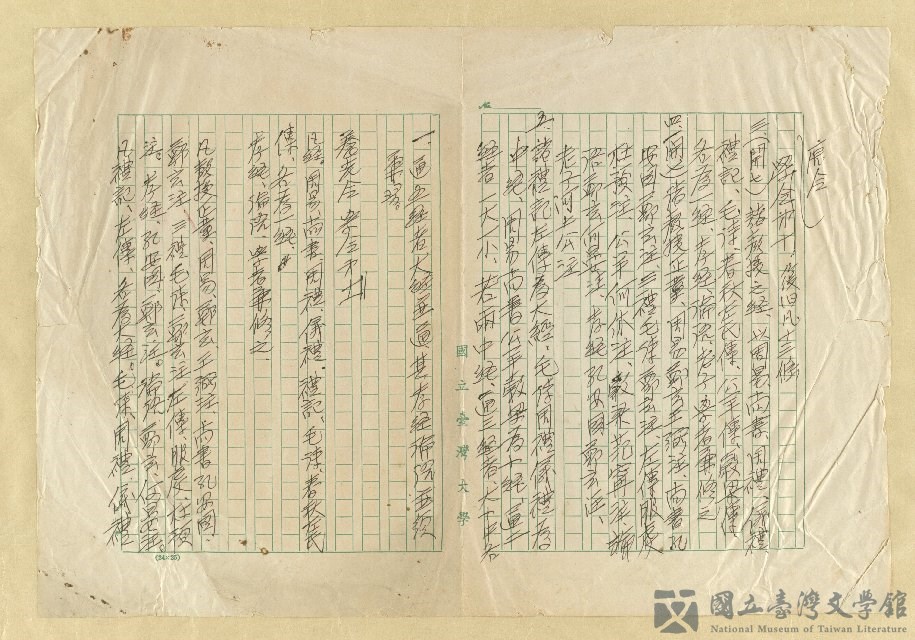 唐令
学令第十，復旧凡十三條
三、(開七)諸教授之經，以周易、尚書、周禮、儀禮
禮記、毛詩、春秋左氏傳、公羊傳、穀梁傳，
各為一經，孝經、論語、老子，學者兼修之
四(開)諸教授正業，周易鄭玄王弼注，尚書孔
安國鄭玄注，三禮毛詩鄭玄注，左傳服虔
杜預注，公羊何休注，穀梁范寧注，論
語鄭玄何晏注，孝經孔安國鄭玄注，
老子河上公注
五、諸禮記左傳為大經，毛詩周禮儀禮為
中經，周易尚書公羊穀梁為小經，通二
經者一大一小，若兩中經，通三經者，大小中各
一、通五經者大經並通其孝經論語並須
兼習
養老令 学令第十一
凡經，周易、尚書、周禮、儀禮、禮記、毛詩、春秋左氏
傳，各為一經，
孝經、論語，學者兼修之
凡教授正業，周易，鄭玄、王弼注，尚書孔安國，
鄭玄注，三禮毛詩，鄭玄注左傳，服虔，杜預
注。孝經，孔安國，鄭玄注。論語，鄭玄，何晏注
凡禮記，左傳，各為大經。毛詩，周禮，儀禮
國立臺灣大學
(24×25)
國立臺灣文學館
National Museum of Taiwan Literature